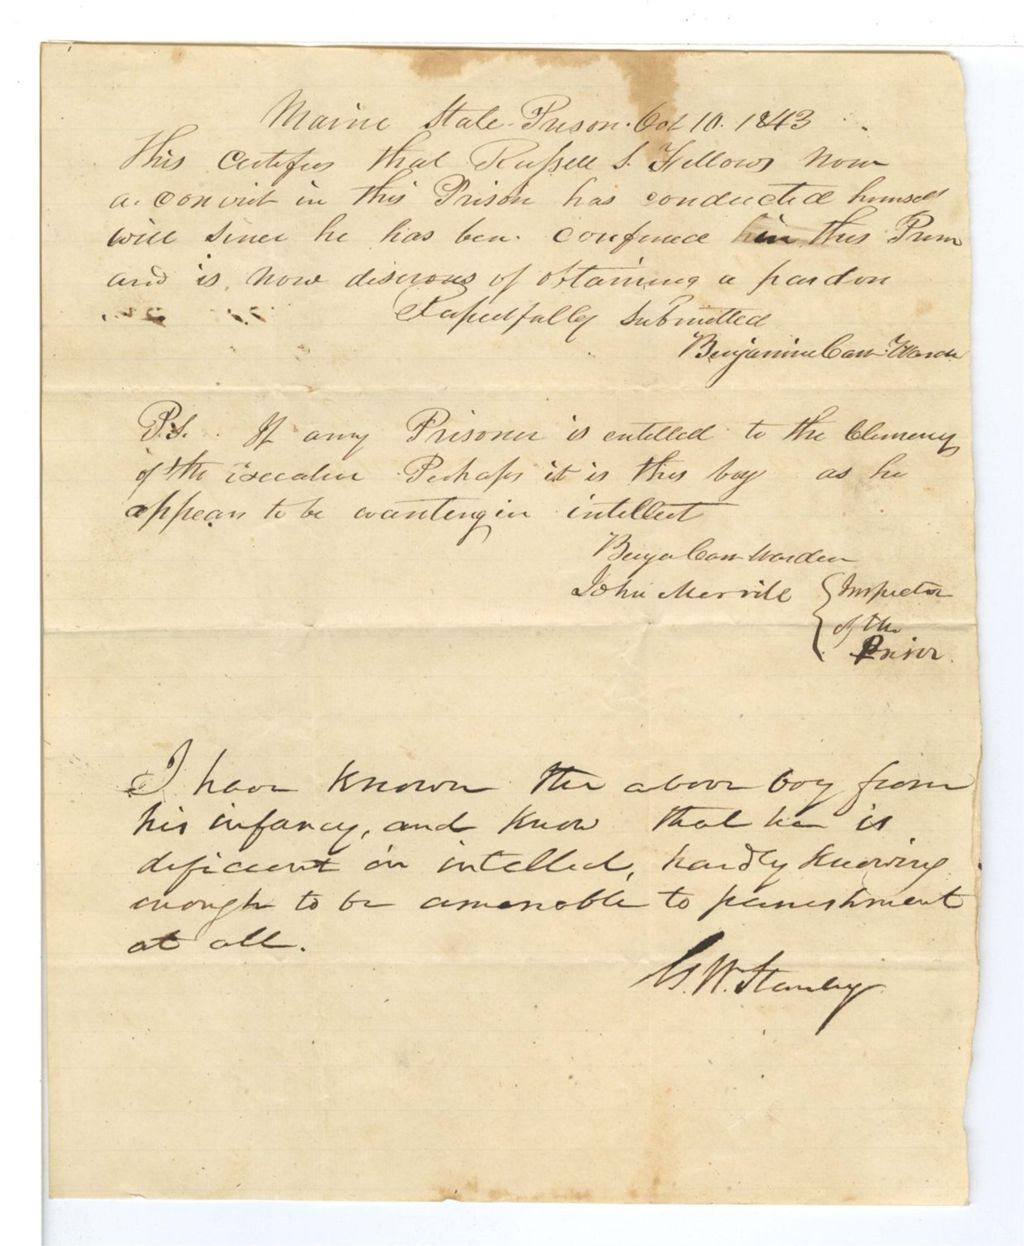 Maine State Prison. Oct 10. 1843
This certifies that Russell S. Fellows now
a convict in this Prison has conducted himself
well since he has ben confined in this Prison
and is now disirous of obtaining a pardon
Respectfully Submitted
Benjamine Carr Warden
P.S. If any Prisoner is entitled to the Clemency
of the Executive Perhaps it is this boy as he
appears to be wanteng in intellect
Benja Carr Warden
John Merrill { Inspector
of the
Prison
I have known the above boy from
his infancy, and know that he is
deficient in intellect, hardly knowing
enough to be amenable to punishment
at all.
G. W. Stanley